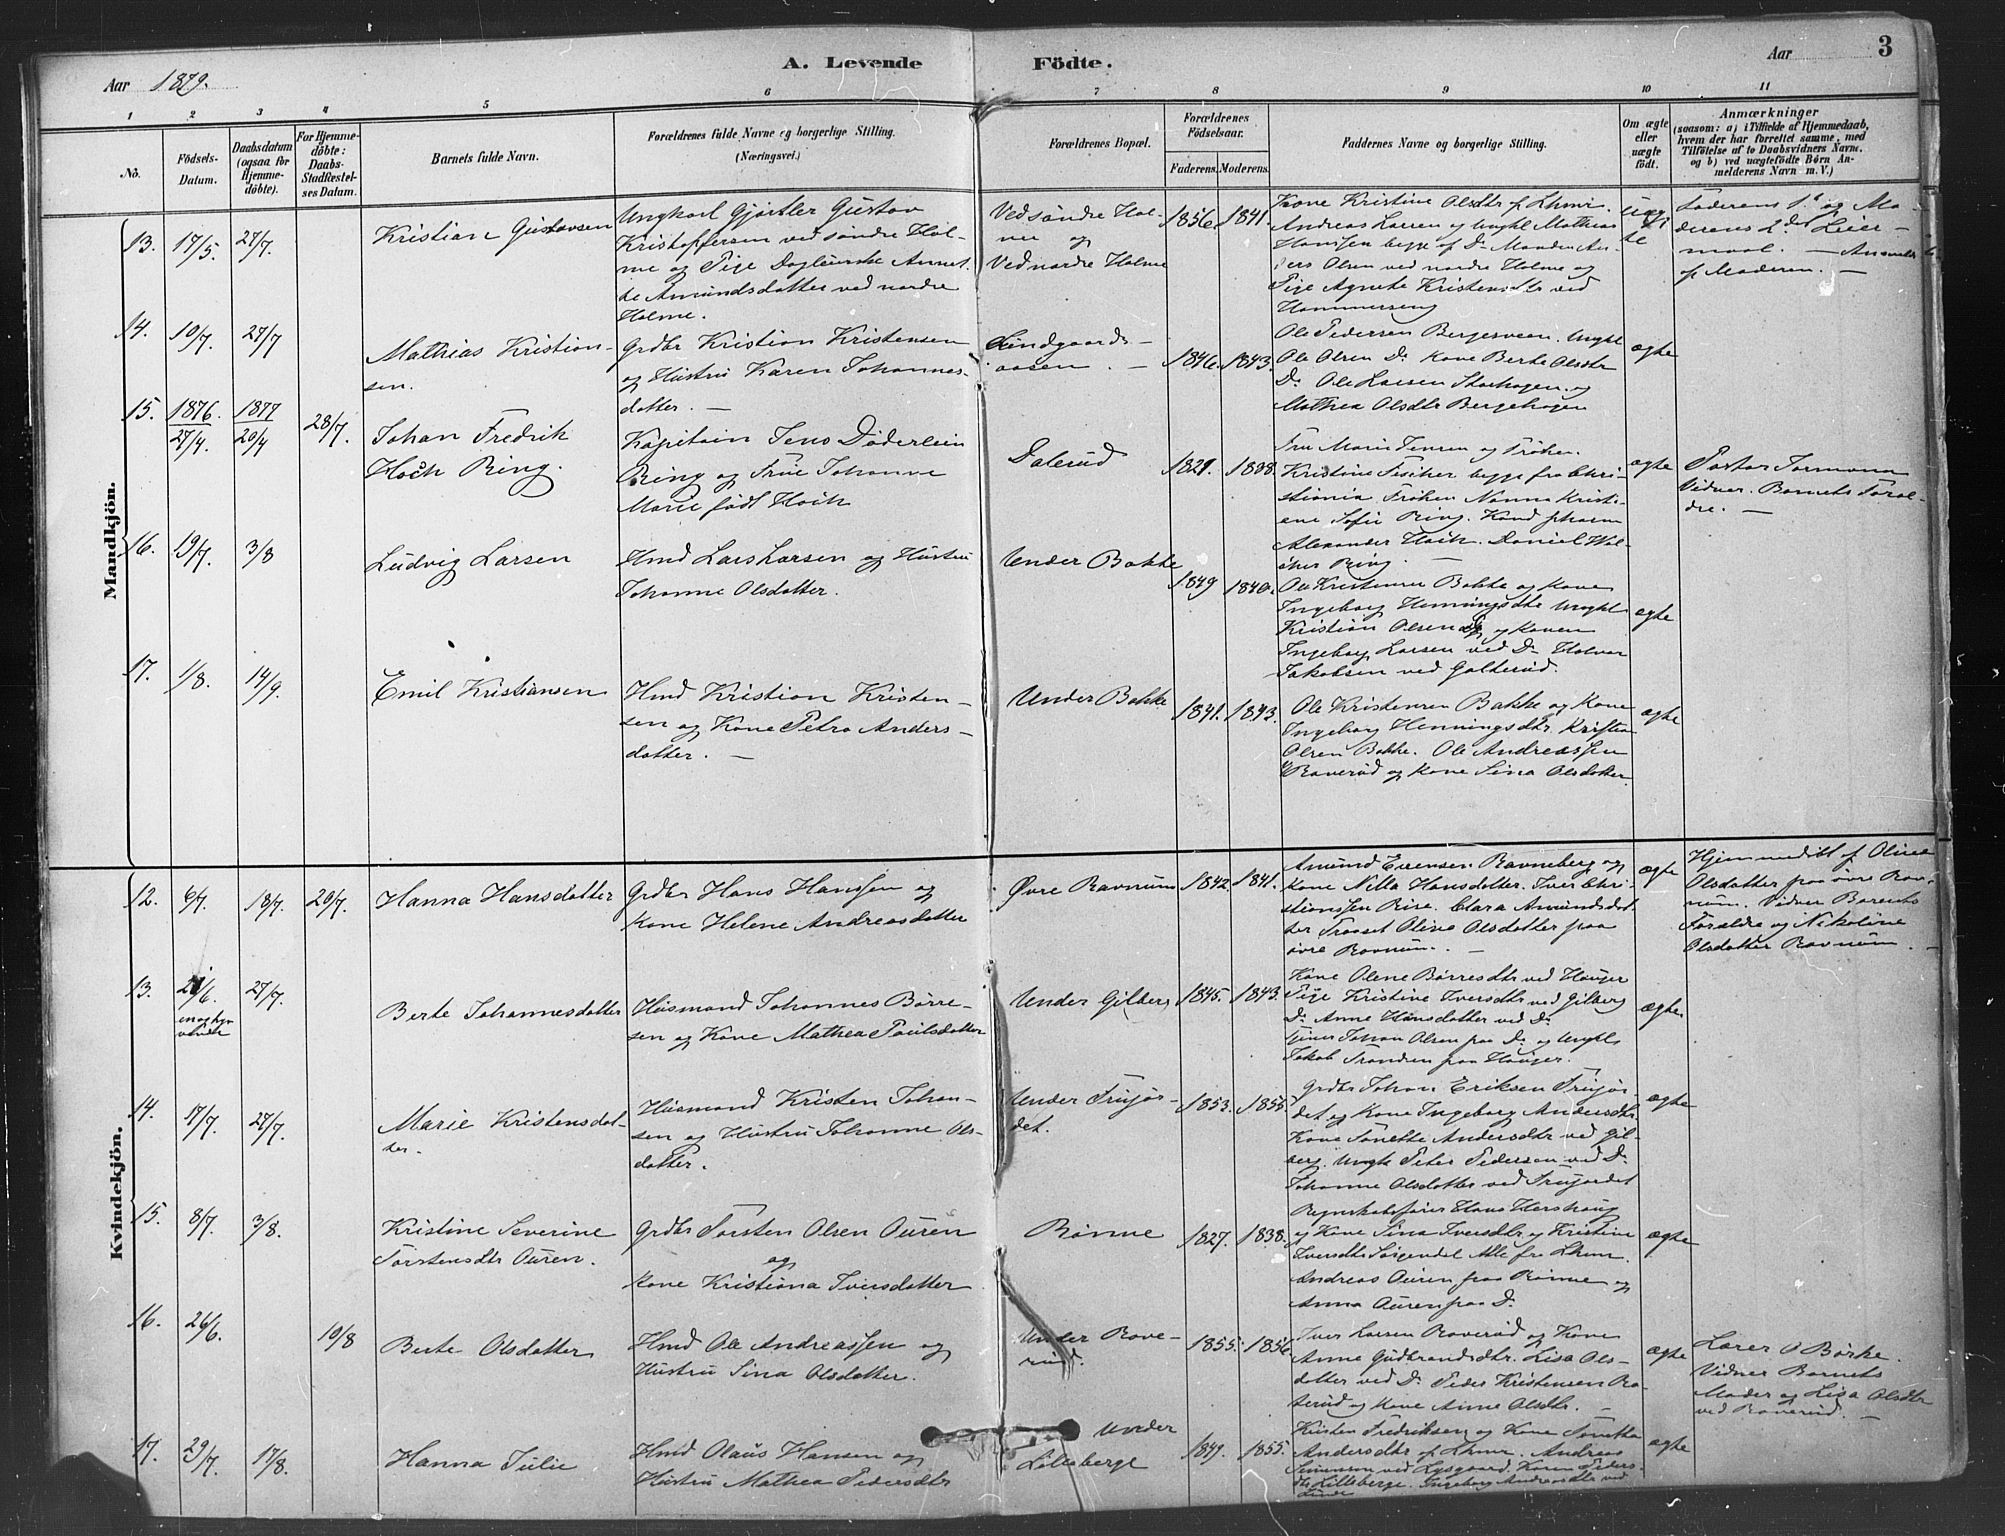 Aar 1879.
A. Levende Födte.
Aar
3
1 2 3 4 5 6 7 8 9 10 11
No.
Födsels-
Datum.
Daabsdatum
(ogsaa for
Hjemme-
döbte).
For Hjemme-
döbte:
Daabs-
Stadfæstel-
ses Datum.
Barnets fulde Navn.
Forældrenes fulde Navne og borgerlige Stilling.
(Næringsvei.)
Forældrenes Bopæl.
Forældrenes
Födselsaar.
Faderens. Moderens.
Faddernes Navne og borgerlige Stilling.
Om ægte
eller
uægte
født.
Anmærkninger
(saasom: a) i Tilfælde af Hjemmedaab,
hvem der har forrettet samme, med
Tilföielse af to Daabsvidners Navne,
og b) ved uægtefödte Börn An-
melderens Navn m. V.)
Mandkjön.
13. 17/5. 27/7.
Kristian Gustavsen
Ungkarl Gjørtler Gustav
Kristoffersen ved søndre Hol-
me og Pige Dagleierske Annet-
te Amundsdatter ved nordre
Holme.
Ved søndre Hol-
me og
Ved nordre Holme
1856. 1841.
Kone Kristine Olsdtr f. Lhmr.
Andreas Larsen og Ungkl Mathias
Hanssen begge af Do Manden An-
ders Olsen ved nordre Holme og
Pige Agnete Kristensdtr ved
Hammerseng
Uæg
te
Faderens 1ste og Mo-
derens 2det Leier-
maal. — Anmeldt
af Moderen. —
14. 10/7. 27/7
Mathias Kristian-
sen.
Grdbr Kristian Kristensen
og Hustru Karen Johannes-
datter. —
Lundgaards-
aasen. —
1846. 1843.
Ole Pedersen Bergesveen. Ungkl
Ole Olsen Do Kone Berte Olsdtr
Do Ole Larsen Storhagen og
Mathea Olsdtr Bergehagen
ægte
15. 1876. 1877
27/4. 20/4 28/7.
Johan Fredrik
Hoch Ring.
Kapitain Jens Döderlein
Ring og Frue Johanne
Marie født Hoch
Dalerud
1829. 1838.
Fru Marie Jensen og Frøken
Kristine Fischer begge fra Chri-
stiania Frøken Nanna Kristi-
ane Sofie Ring. Kand pharm
Alexander Hoch. Daniel Wal-
Ring.
ægte
Pastor
Vidner. Barnets Foræl-
dre. —
16. 19/7. 3/8
Ludvig Larsen
Hmd Lars Larsen og Hustru
Johanne Olsdatter.
Under Bakke
1849 1840.
Ole Kristensen Bakke og Kone
Ingeborg Henningsdtr Ungkl
Kristian Olsen og Konen
Ingeborg Larsen ved Do Halvor
Jakobsen ved Galterud.
ægte
17. 1/8. 14/9.
Emil Kristiansen
Hmd Kristian Kristen-
sen og Kone Petra Anders-
datter. —
Under Bakke
1841. 1843.
Ole Kristensen Bakke og Kone
Ingeborg Henningsdtr. Kristian
Olsen Bakke. Ole Andreassen
Raverud og Kone Sina Olsdatter.
ægte
Kvindekjön.
12. 6/7. 18/7. 20/7.
Hanna Hansdatter
Grdbr Hans Hanssen og
Kone Helene Andreasdatter
Øvre Ravnum
1842. 1841.
Amund Evensen Ravneberg og
Kone Nilla Hansdatter. Iver Chri-
stianssen Rise. Clara Amundsdat-
ter Traaset Oline Olsdatter paa
øvre Ravnum. —
ægte
Hjemmedøbt af Oline
Olsdatter paa øvre Rav-
num. Vidner Barnets
Forældre og Nikoline
Olsdatter Ravnum. —
13. 21/6. 27/7.
Berte Johannesdatter
Husmand Johannes Børre-
sen og Kone Mathea Poulsdatter
Under Gilberg
1845. 1843.
Kone Olene Børresdtr ved Hauger
Pige Kristine Iversdtr ved Gilberg
Do Anne Hansdatter ved Do
tjener Johan Olsen paa Do og Ungkl
Jakob Trondsen paa Hauger.
ægte
14. 17/7. 27/7.
Marie Kristensdat-
ter.
Husmand Kristen Johan-
sen og Hustru Johanne Ols-
datter.
Under Frujor-
det.
1853. 1855.
Grdbr Johan Eriksen Frujor-
det og Kone Ingeborg Andersdtr
Kone Jonette Andersdtr ved Gil-
berg. Ungk Peter Pedersen ved Do
Johanne Olsdatter ved Frujordet
ægte
15. 8/7. 3/8.
Kristine Severine
Torstensdtr Ouren.
Grdbr Torsten Olsen Ouren
og
Kone Kristiana Iversdatter
Rønne
1827. 1838.
Regnskabsfører Hans Hershaug
og Kone Sina Iversdtr og Kristine
Iversdtr Sørgendal Alle fr Lhmr.
Andreas Ouren paa Rønne og
Anna Ouren paa Do
ægte
16. 26/6. 10/8
Berte Olsdatter
Hmd Ole Andreassen og
Hustru Sina Olsdatter.
Under Rave-
rud.
1855. 1856.
Iver Larsen Raverud og Kone
Anne Gudbrandsdtr. Lisa Ols-
datter ved Do Peder Kristensen Ra-
verud og Kone Anne Olsdtr. —
ægte
Lærer O Børke.
Vidner Barnets
Moder og Lisa Olsdtr
ved Raverud. —
17. 29/7. 17/8.
Hanna Julie
Hmd Olaus Hansen og
Hustru Mathea Pedersdtr
Under
Lilleberge
1849. 1855.
Kristen Fredriksen og Kone Jonetta
Andersdtr af Lhmr. Andreas
Simensen ved Lysgaard. Karen Peders-
dtr Lilleberge. Ingeborg Andreasdtr ved
Lunde
ægte